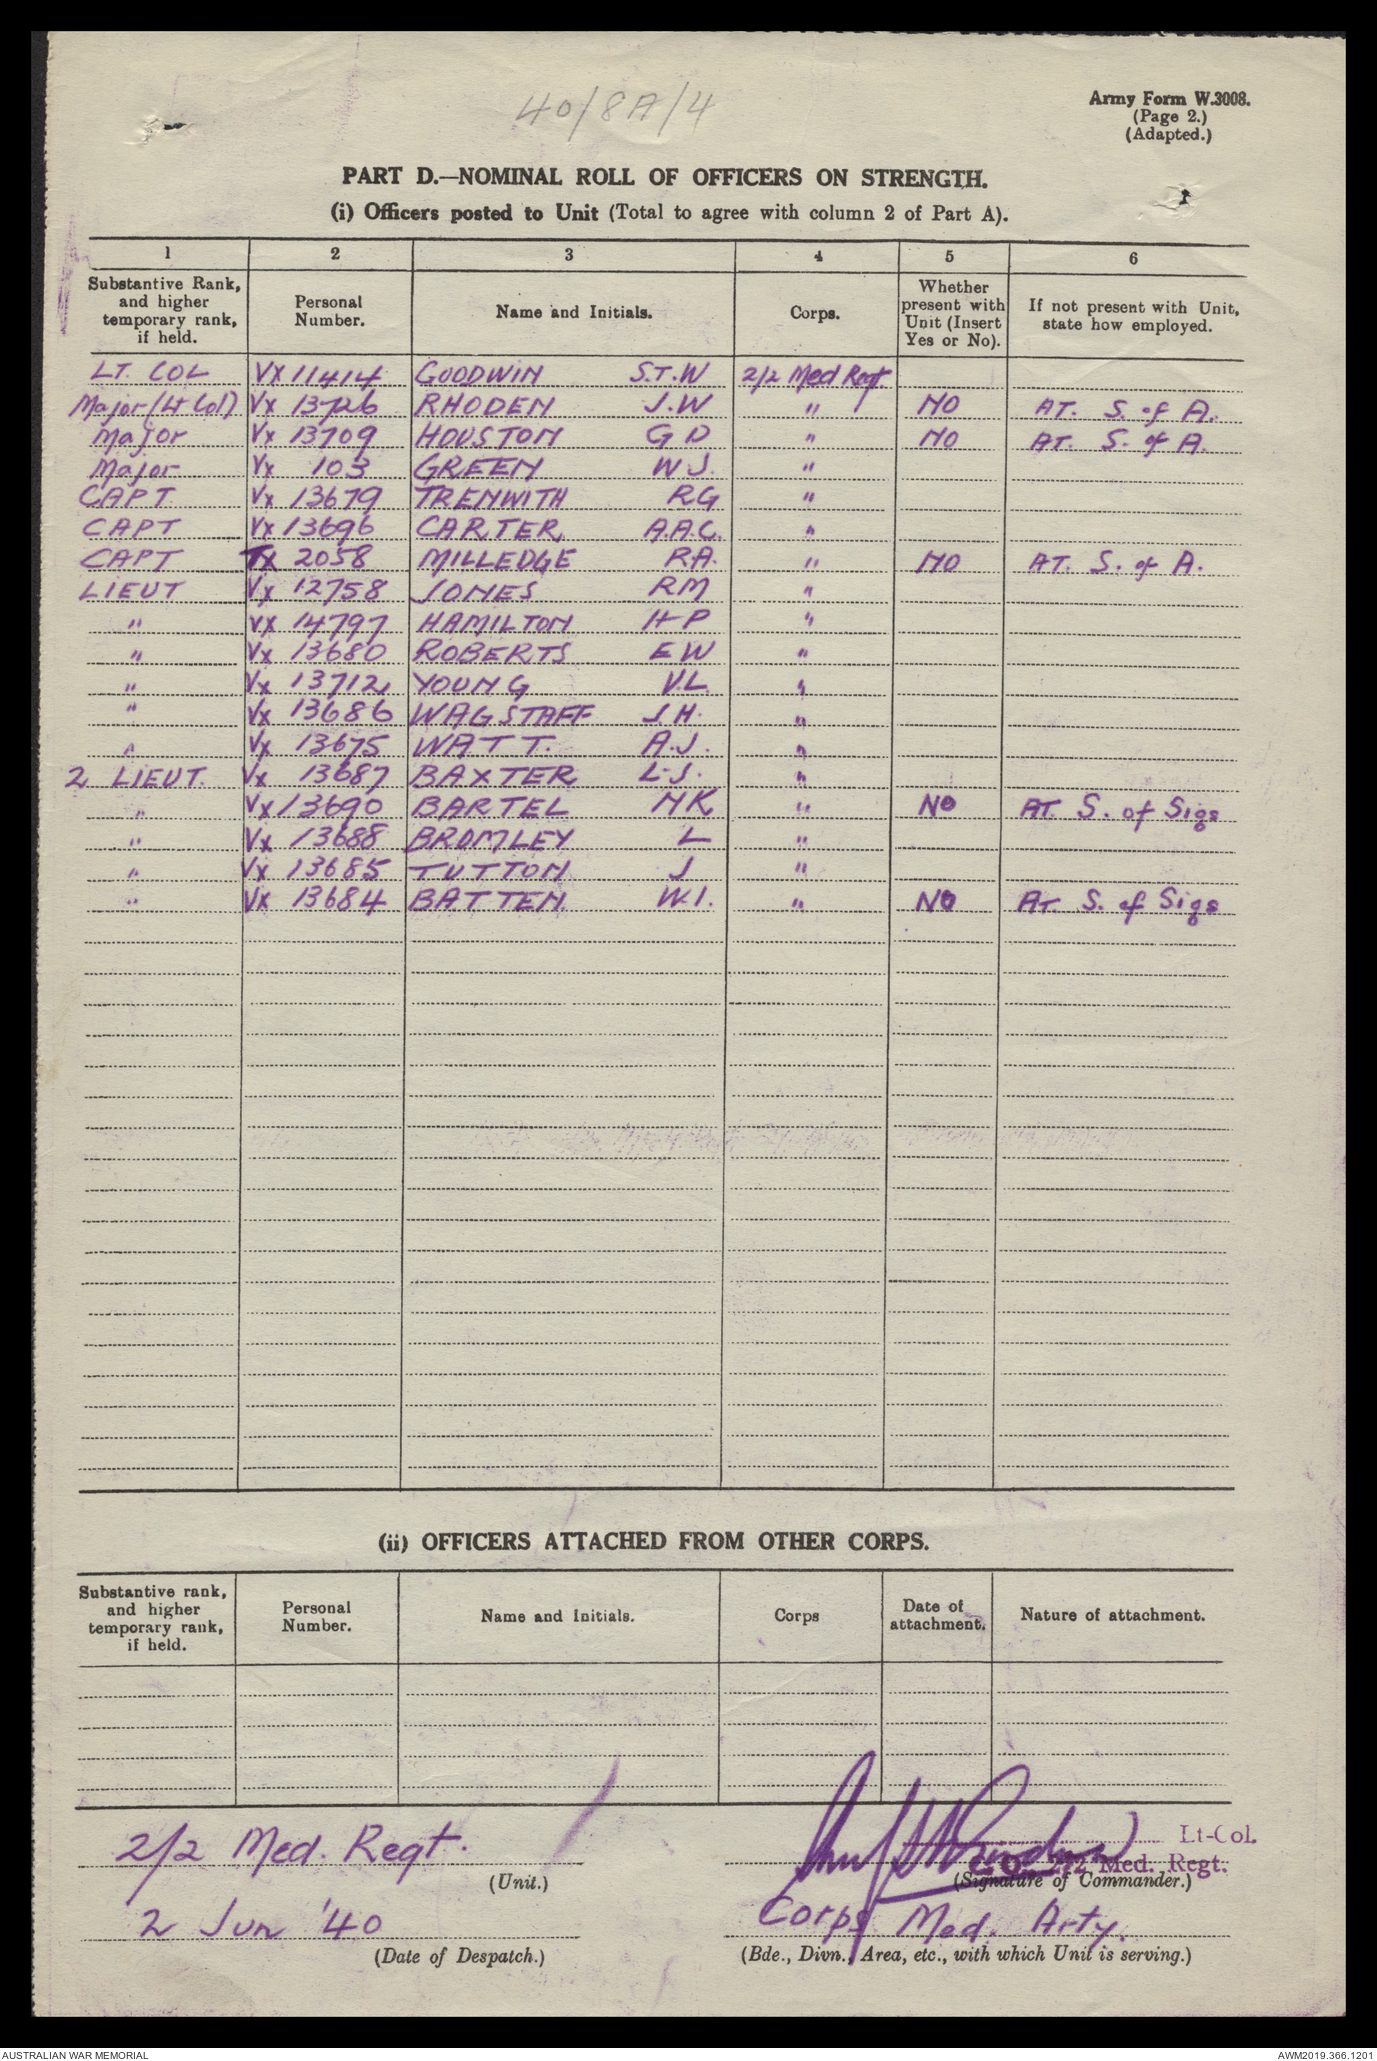 40/8A/4
Army Form W.3008.
(Page 2.)
(Adapted.)
PART D.—NOMINAL ROLL OF OFFICERS ON STRENGTH.
(i) Officers posted to Unit (Total to agree with column 2 of Part A).
1 2 3 4 5 6
Substantive Rank, and higher temporary rank, if held. Personal Number. Name and Initials. Corps. Whether present with Unit (Insert Yes or No). If not present with Unit, state how employed.
LT. COL VX 11414 GOODWIN S.T.W 2/2 Med Regt.
Major (Lt Col) Vx 13726 RHODEN J.W " NO AT. S. of A.
Major Vx 13709 HOUSTON G D " NO AT. S. of A.
Major Vx 103 GREEN W J. "
CAPT Vx 13679 TRENWITH RG "
CAPT Vx 13696 CARTER A.A.C. "
CAPT Tx 2058 MILLEDGE RA. " NO AT. S. of A.
LIEUT Vx 12758 JONES RM "
" VX 14797 HAMILTON H P "
" Vx 13680 ROBERTS E W "
" Vx 13712 YOUNG V.L. "
" Vx 13686 WAGSTAFF J.H. "
" Vx 13675 WATT. A.J. "
2 LIEUT. Vx 13687 BAXTER L.J. "
" Vx 13690 BARTEL HK " NO AT. S. of Sigs
" Vx 13688 BROMLEY L "
" Vx 13685 TUTTON J "
" Vx 13684 BATTEN. W.I. " NO AT. S. of Sigs
(ii) OFFICERS ATTACHED FROM OTHER CORPS.
Substantive rank, and higher temporary rank, if held. Personal Number. Name and Initials. Corps Date of attachment. Nature of attachment.
2/2 Med. Regt. Lt-Col.
C.O. 2/2 Med. Regt.
(Unit.) (Signature of Commander.)
2 Jun '40 Corps Med. Arty.
(Date of Despatch.) (Bde., Divn., Area, etc., with which Unit is serving.)
AUSTRALIAN WAR MEMORIAL AWM2019.366.1201